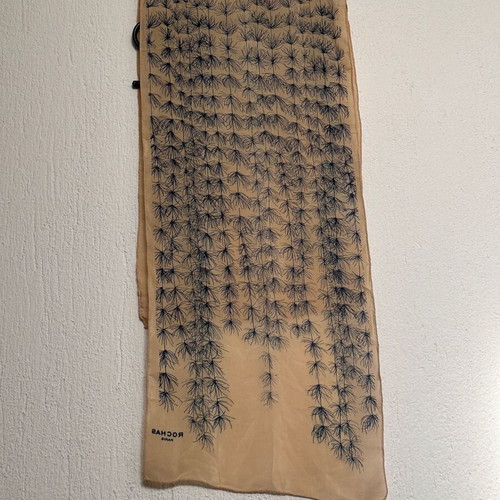 ROCHAS
PARIS